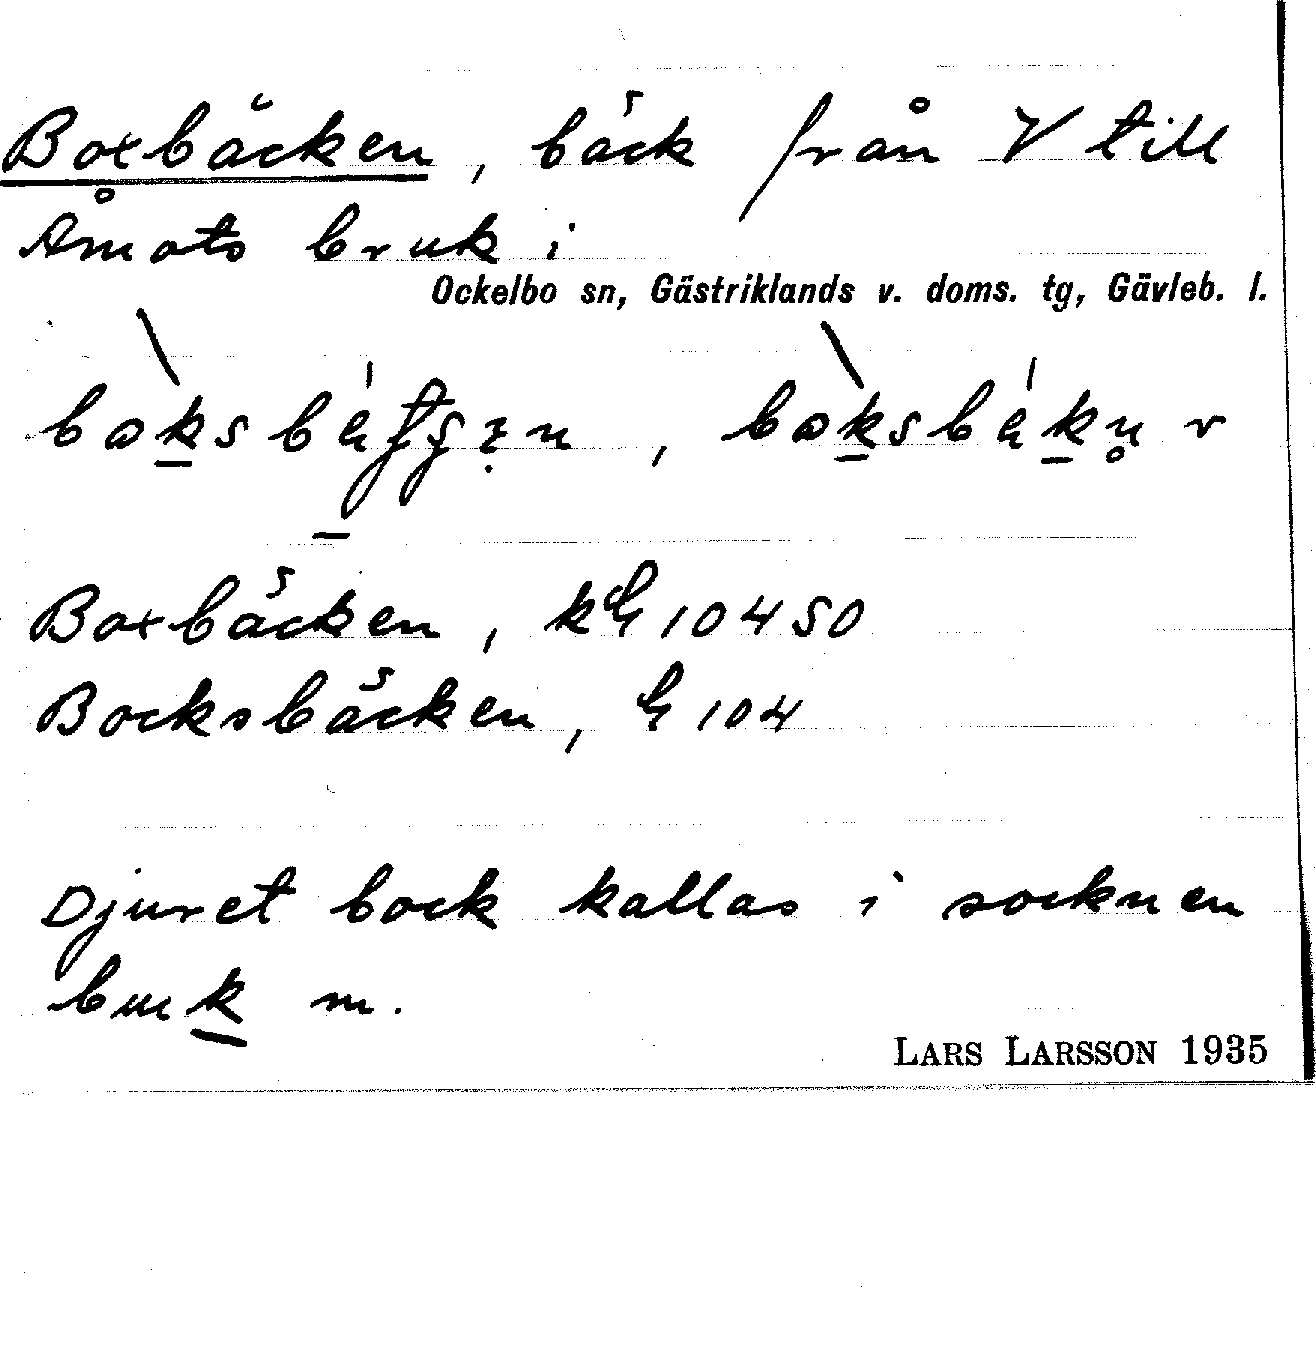 Boxbäcken, bäck från V till
Åmots bruk i
Ockelbo sn, Gästriklands v. doms. tg, Gävleb. l.
Boxbäcken, 10450
Bocksbäcken, 104
Djuret bock kallas i socknen
buk m.
LARS LARSSON 1935